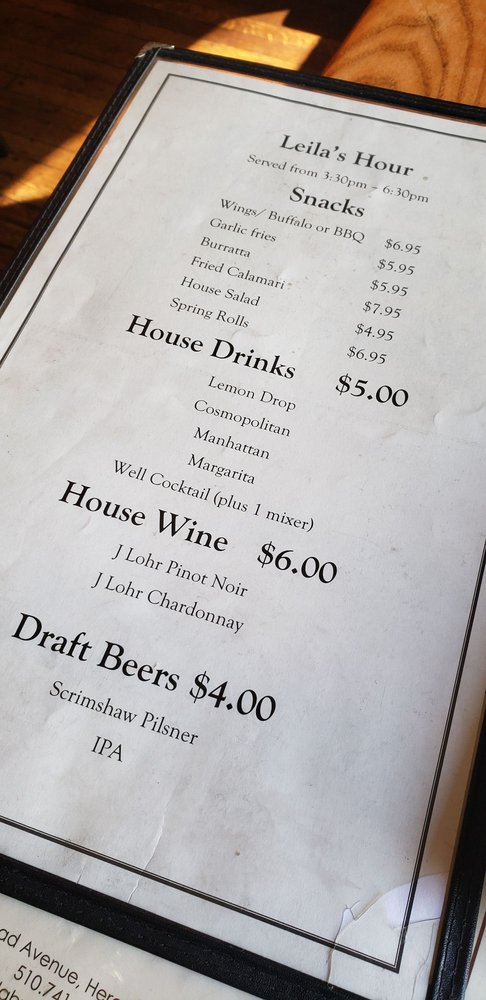 Leila's Hour
Served from 3:30pm - 6:30pm
Snacks
Wings/ Buffalo or BBQ $6.95
Garlic fries $5.95
Burratta $5.95
Fried Calamari $7.95
House Salad $4.95
Spring Rolls $6.95
House Drinks $5.00
Lemon Drop
Cosmopolitan
Manhattan
Margarita
Well Cocktail (plus 1 mixer)
House Wine $6.00
J Lohr Pinot Noir
J Lohr Chardonnay
Draft Beers $4.00
Scrimshaw Pilsner
IPA
Avenue,
510.741